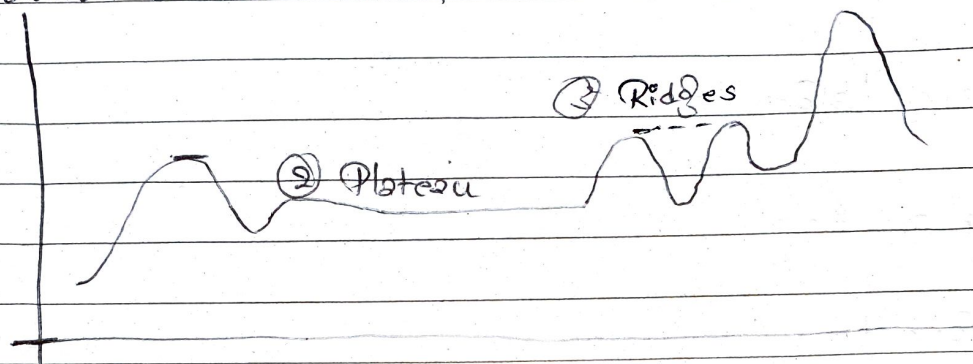 ③ Ridges
② Plateau